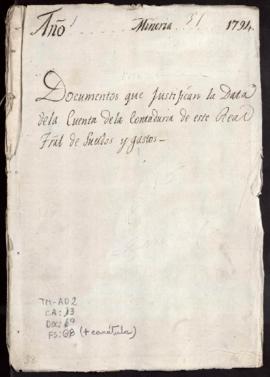 Año Mineria 51 1794
Documentos que Justifican la Data
dela Cuenta de la Contaduria de este Real
Tral de Sueldos y gastos
TM-AD2
CA: 13
DOC: 69
FS: 68 (+ carátula)